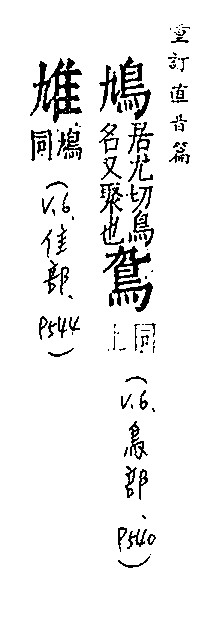 重訂直音篇
鳩居尤切鳥名又聚也
同上
(V.6.鳥部、P540)
鳩同
(V.6.佳部、P544)